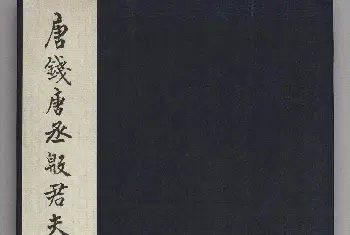 唐錢唐丞殷君夫